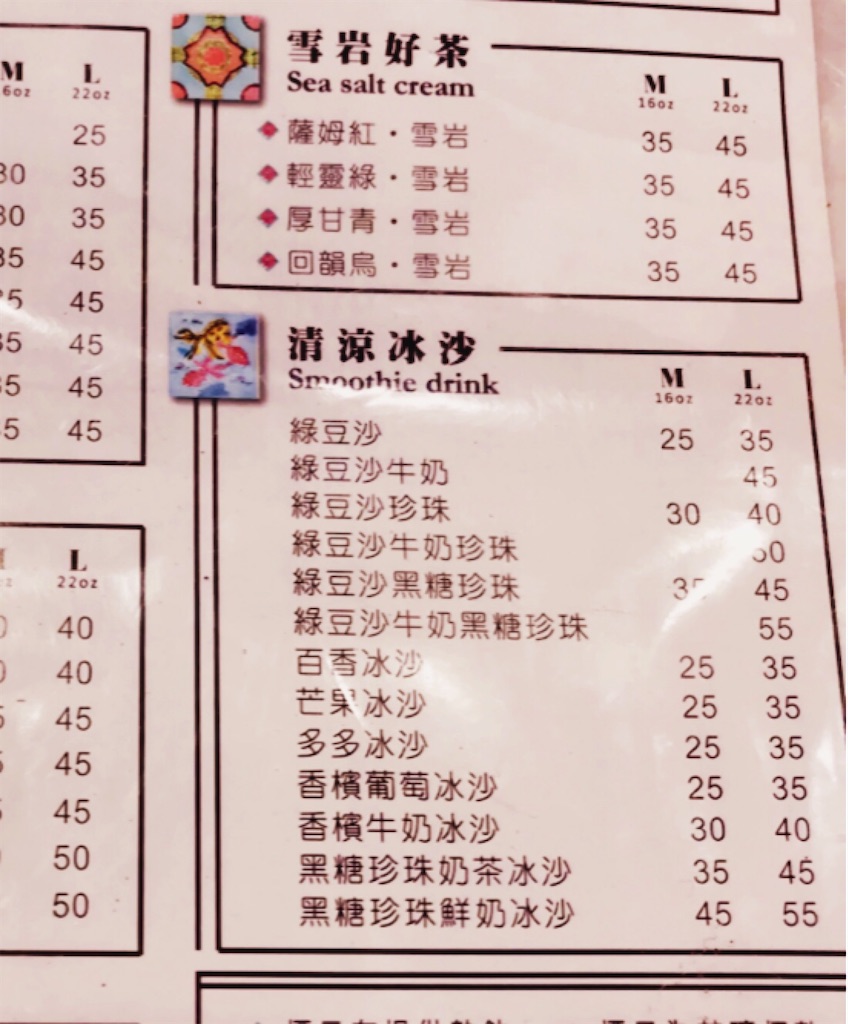 M L
16oz 22oz
25
30 35
30 35
35 45
35 45
35 45
35 45
35 45
L
22oz
40
40
45
45
45
50
50
雪岩好茶
Sea salt cream
M L
16oz 22oz
薩姆紅・雪岩 35 45
輕靈綠・雪岩 35 45
厚甘青・雪岩 35 45
回韻烏・雪岩 35 45
清涼冰沙
Smoothie drink
M L
16oz 22oz
綠豆沙 25 35
綠豆沙牛奶 45
綠豆沙珍珠 30 40
綠豆沙牛奶珍珠 50
綠豆沙黑糖珍珠 35 45
綠豆沙牛奶黑糖珍珠 55
百香冰沙 25 35
芒果冰沙 25 35
多多冰沙 25 35
香檳葡萄冰沙 25 35
香檳牛奶冰沙 30 40
黑糖珍珠奶茶冰沙 35 45
黑糖珍珠鮮奶冰沙 45 55